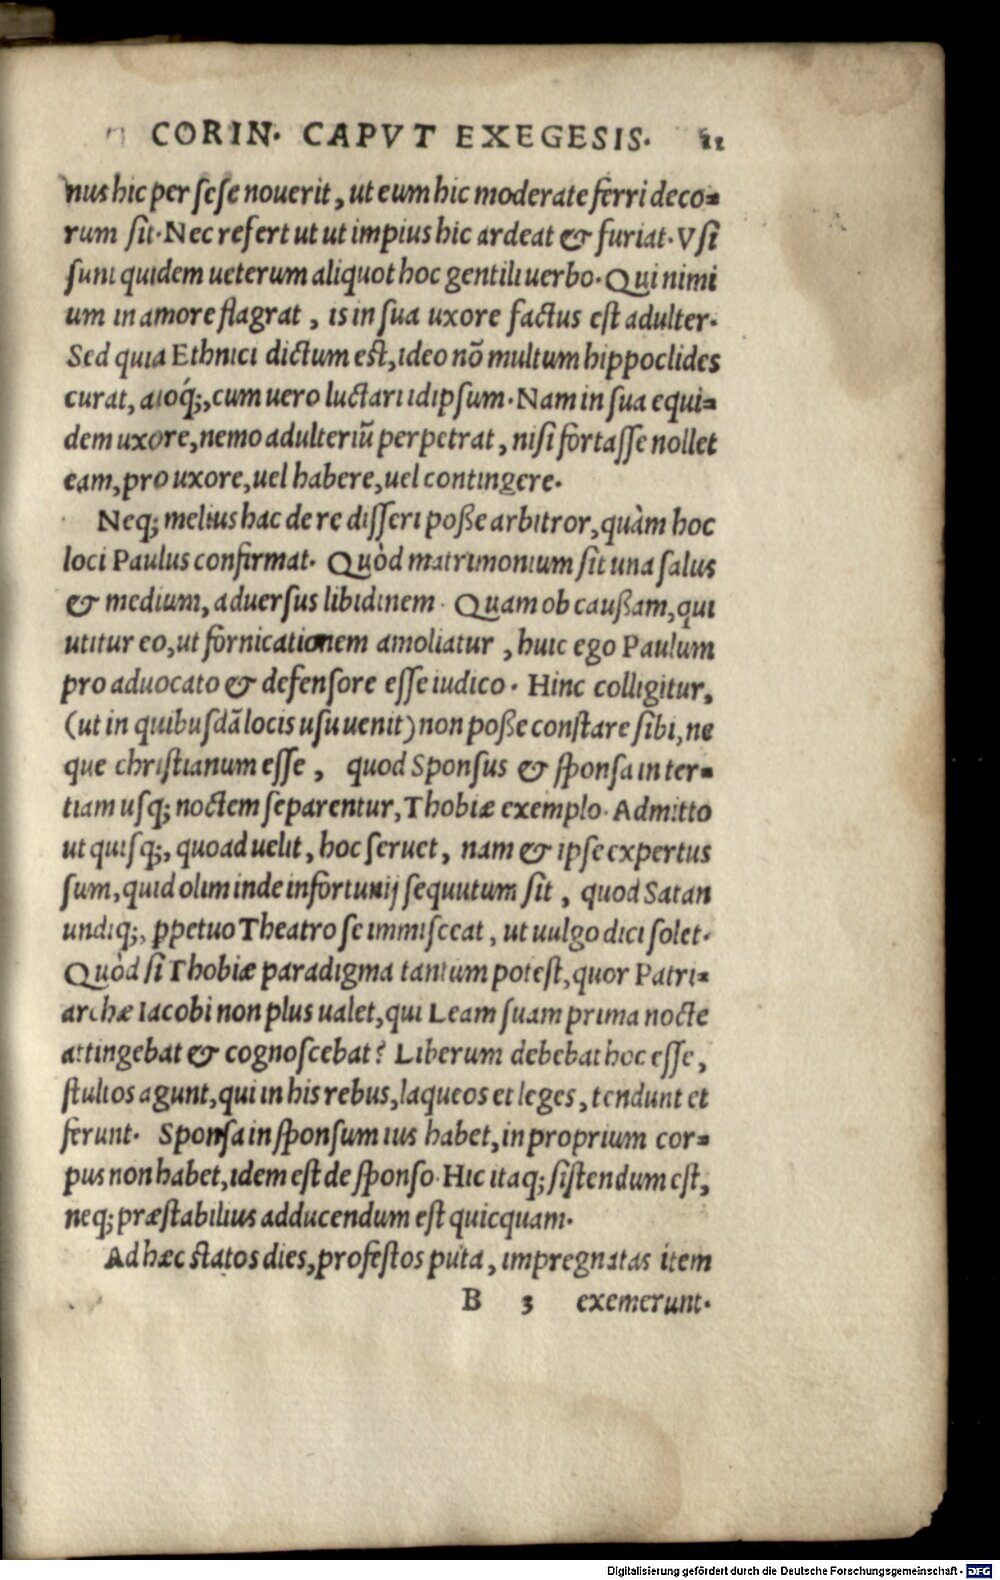 CORIN. CAPVT EXEGESIS. 11
nus hic per sese nouerit, ut eum hic moderate ferri deco=
rum sit. Nec refert ut ut impius hic ardeat & furiat. Vsi
sunt quidem ueterum aliquot hoc gentili uerbo. Qui nimi
um in amore flagrat, is in sua uxore factus est adulter.
Sed quia Ethnici dictum est, ideo nō multum hippoclides
curat, aioq́;, cum uero luctari idipsum. Nam in sua equi=
dem uxore, nemo adulteriū perpetrat, nisi fortasse nollet
eam, pro uxore, uel habere, uel contingere.
Neq; melius hac de re disseri poße arbitror, quàm hoc
loci Paulus confirmat. Quòd matrimonium sit una salus
& medium, aduersus libidinem. Quam ob caußam, qui
utitur eo, ut fornicationem amoliatur, huic ego Paulum
pro aduocato & defensore esse iudico. Hinc colligitur,
(ut in quibusdā locis usu uenit) non poße constare sibi, ne
que christianum esse, quod Sponsus & sponsa in ter=
tiam usq; noctem separentur, Thobiæ exemplo. Admitto
ut quisq;, quoad uelit, hoc seruet, nam & ipse expertus
sum, quid olim inde infortunij sequutum sit, quod Satan
undiq;, ꝑpetuo Theatro se immisceat, ut uulgo dici solet.
Quòd si Thobiæ paradigma tantum potest, quor Patri=
archæ Iacobi non plus ualet, qui Leam suam prima nocte
attingebat & cognoscebat? Liberum debebat hoc esse,
stultos agunt, qui in his rebus, laqueos et leges, tendunt et
ferunt. Sponsa in sponsum ius habet, in proprium cor=
pus non habet, idem est de sponso. Hic itaq; sistendum est,
neq; præstabilius adducendum est quicquam.
Ad hæc statos dies, profestos puta, impregnatas item
B 3 exemerunt.
Digitalisierung gefördert durch die Deutsche Forschungsgemeinschaft - DFG